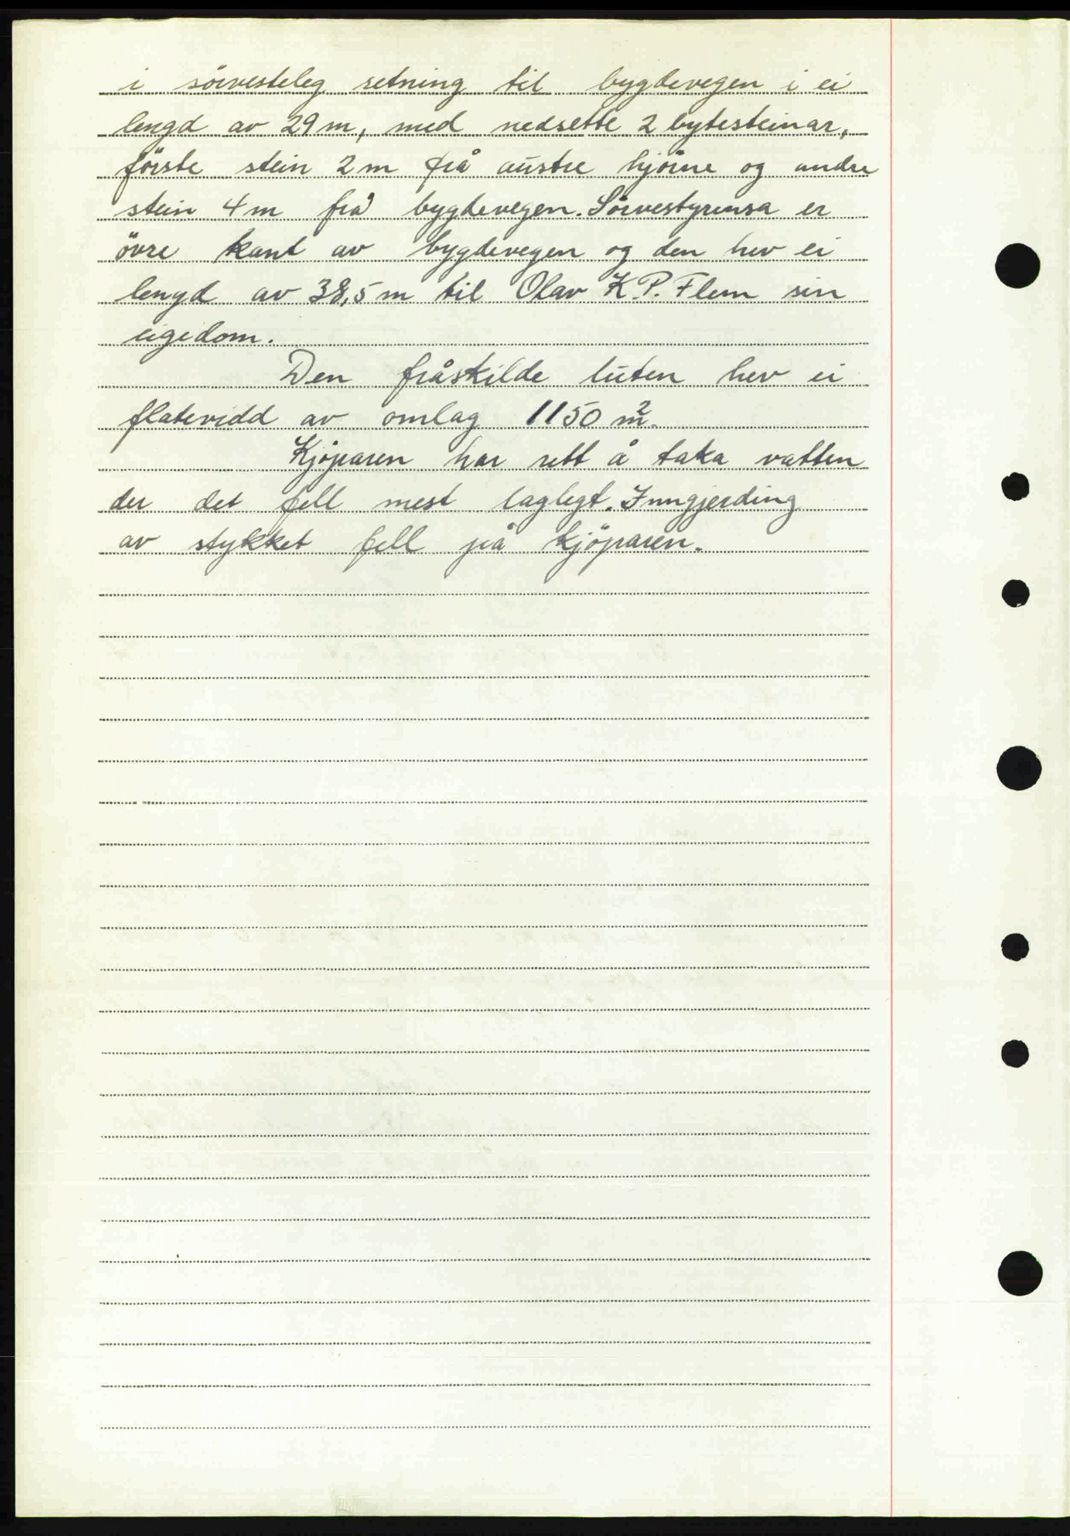 i sörvesteleg retning til bygdevegen i ei
lengd av 29 m, med nedsette 2 bytesteinar,
förste stein 2 m frå austre hjörne og andre
stein 4 m frå bygdevegen. Sörvestgrensa er
övre kant av bygdevegen og den hev ei
lengd av 38,5 m til Olav K. P. Flem sin
eigedom.
Den fråskilde luten hev ei
flatevidd av omlag 1150 m².
Kjöparen har rett å taka vatten
der det fell mest laglegt. Inngjerding
av stykket fell på kjöparen.